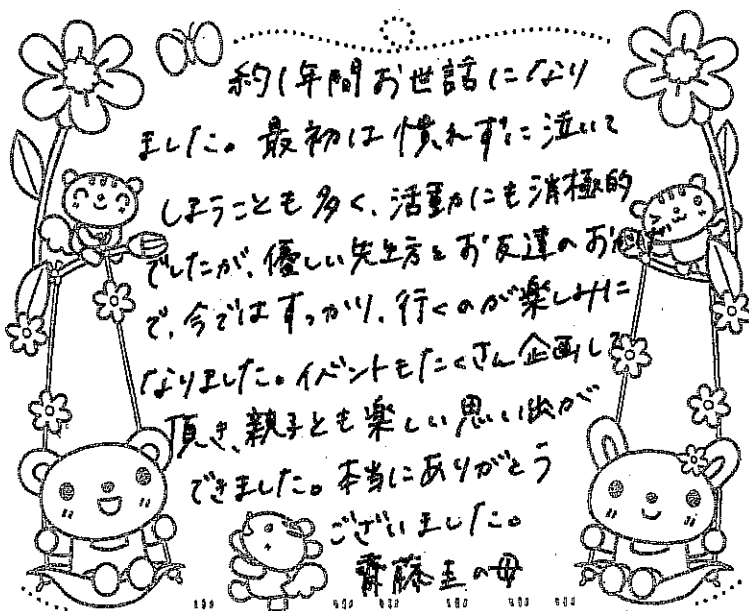 約1年間お世話になり
ました。最初は慣れずに泣いて
しまうことも多く、活動にも消極的
でしたが、優しい先生方とお友達のお
で、今ではすっかり、行くのが楽しみに
なりました。イベントもたくさん企画して
頂き、親子とも楽しい思い出が
できました。本当にありがとう
ございました。
齋藤圭の母